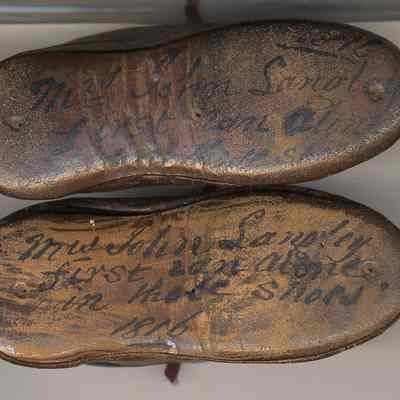 Mrs John Langley
first ran alone
Mrs John Langley
first ran alone
in these shoes
1816